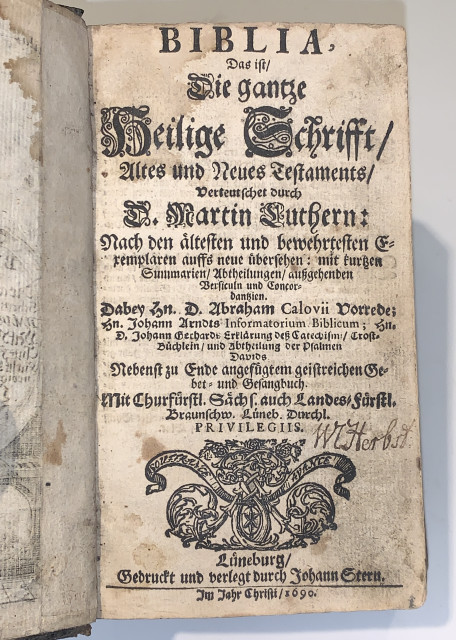 BIBLIA,
Das ist/
Die gantze
Heilige Schrifft/
Altes und Neues Testaments/
Verteutschet durch
D. Martin Luthern:
Nach den ältesten und bewehrtesten E-
xemplaren auffs neue übersehen: mit kurtzen
Summarien/ Abtheilungen/ außgehenden
Versiculn und Concor-
dantzien.
Dabey Hn. D. Abraham Calovii Vorrede;
Hn. Johann Arndts Informatorium Biblicum; Hn.
D. Johann Gerhards Erklärung deß Catechismi/ Trost-
Büchlein/ und Abtheilung der Psalmen
Davids
Nebenst zu Ende angefügtem geistreichen Ge-
bet- und Gesangbuch.
Mit Churfürstl. Sächs. auch Landes-Fürstl.
Braunschw. Lüneb. Durchl.
PRIVILEGIIS.
W Herbst
Lüneburg/
Gedruckt und verlegt durch Johann Stern.
Im Jahr Christi/ 1690.